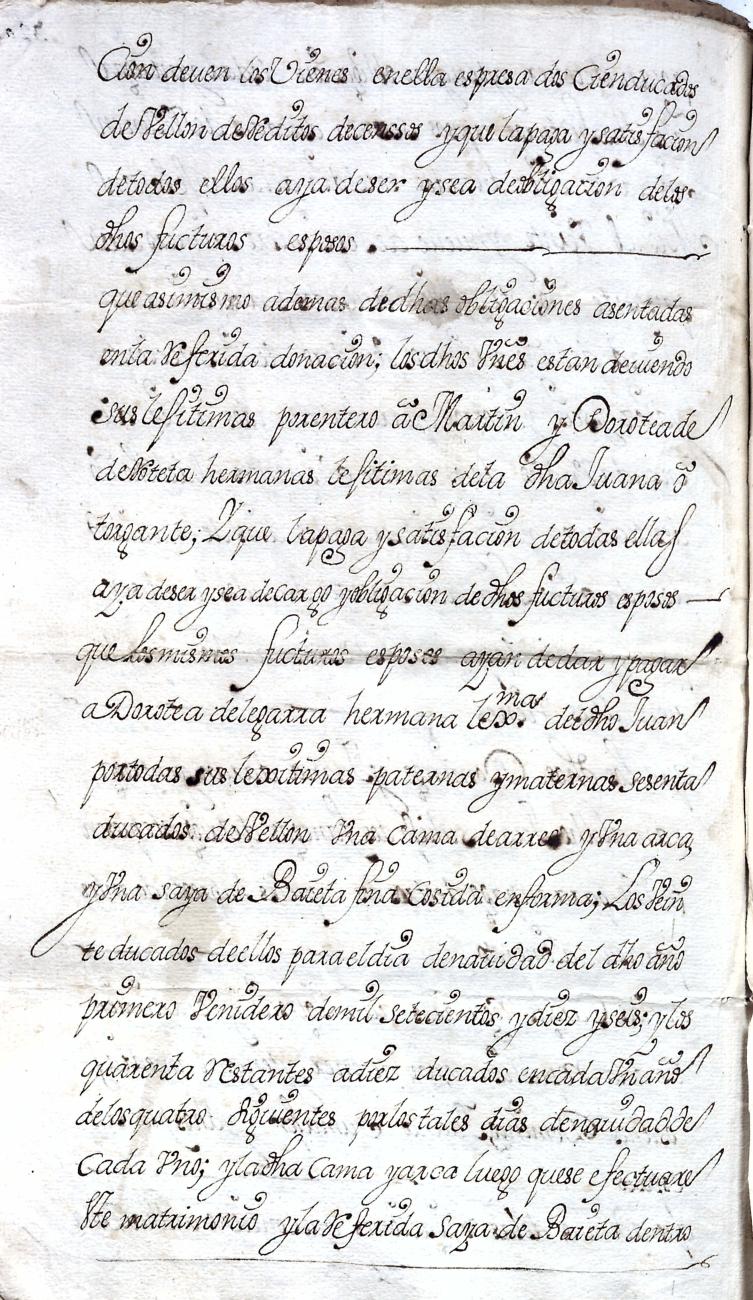 Cion deuen los Vienes enella espresados Cien ducados
de Vellon de Reditos decenssos yque lapaga ysatisfacion
detodos ellos aya deser ysea deobligacion delos
dhos fucturos esposos
que asimismo ademas dedhas obligaciones asentadas
enla Referida donacion; los dhos Vnes estan deuiendo
sus lesitimas porentero â Martin y Dorotea de
de hermanas lesitimas dela dha Juana ô
torgante; Yque lapaga ysatisfacion detodas ellas
aya deser ysea decargo yobligacion de dhos fucturos esposos
que los mismos fucturos esposos ayan dedar ypagar
a Dorotea delegarra hermana lexma. del dho Juan
portodas sus lexitimas paternas ymaternas sesenta
ducados de Vellon Vna cama dearreo yVna arca
yVna saya de Baieta fina Cosida enforma; Los Vein
te ducados deellos para eldia denauidad del dho año
primero Venidero demil setecientos ydiez yseis; ylos
quarenta Restantes adiez ducados encada Vn año
delos quatro siguientes porlos tales dias denauidad de
Cada Vno; yladha Cama yarca luego quese efectuare
Ste matrimonio yla Referida saya de Baieta dentro